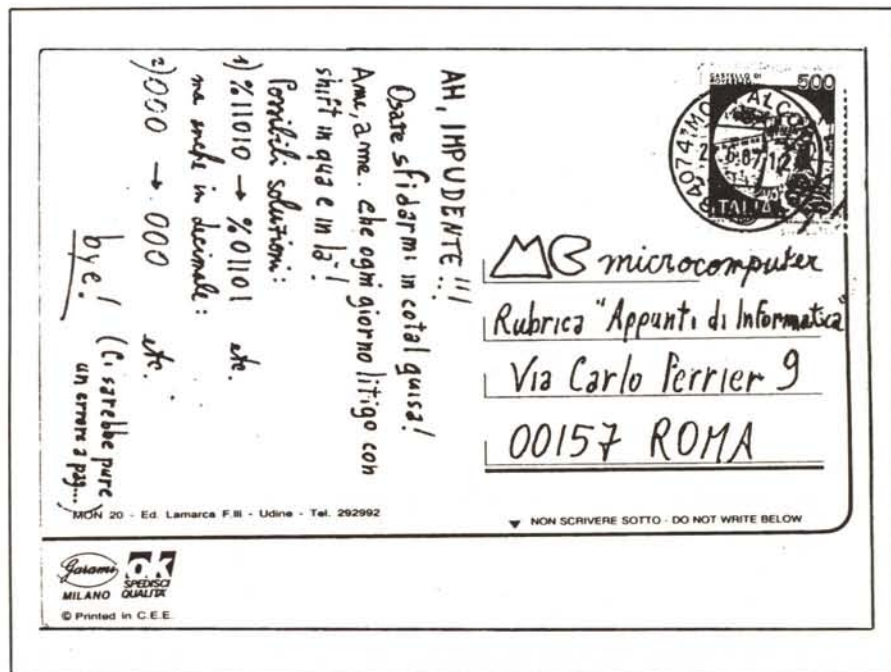 AH, IMPUDENTE!!!
Osate sfidarmi in cotal guisa!
A me, a me. che ogni giorno litigo con
shift in qua e in là!
Possibili soluzioni:
1) %11010 → %01101 etc.
ma anche in decimale:
2) 000 → 000 etc.
bye! (Ci sarebbe pure
un errore a pag...)
CASTELLO DI
500
ITALIA
MC microcomputer
Rubrica "Appunti di Informatica"
Via Carlo Perrier 9
00157 ROMA
MON 20 - Ed. Lamarca F.lli - Udine - Tel. 292992
▼ NON SCRIVERE SOTTO - DO NOT WRITE BELOW
Garami
MILANO
OK
SPEDISCI
QUALITÀ
© Printed in C.E.E.